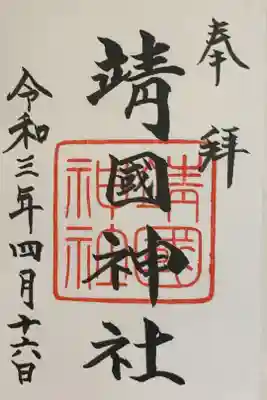 奉拝
靖國神社
靖國神社
令和三年四月十六日